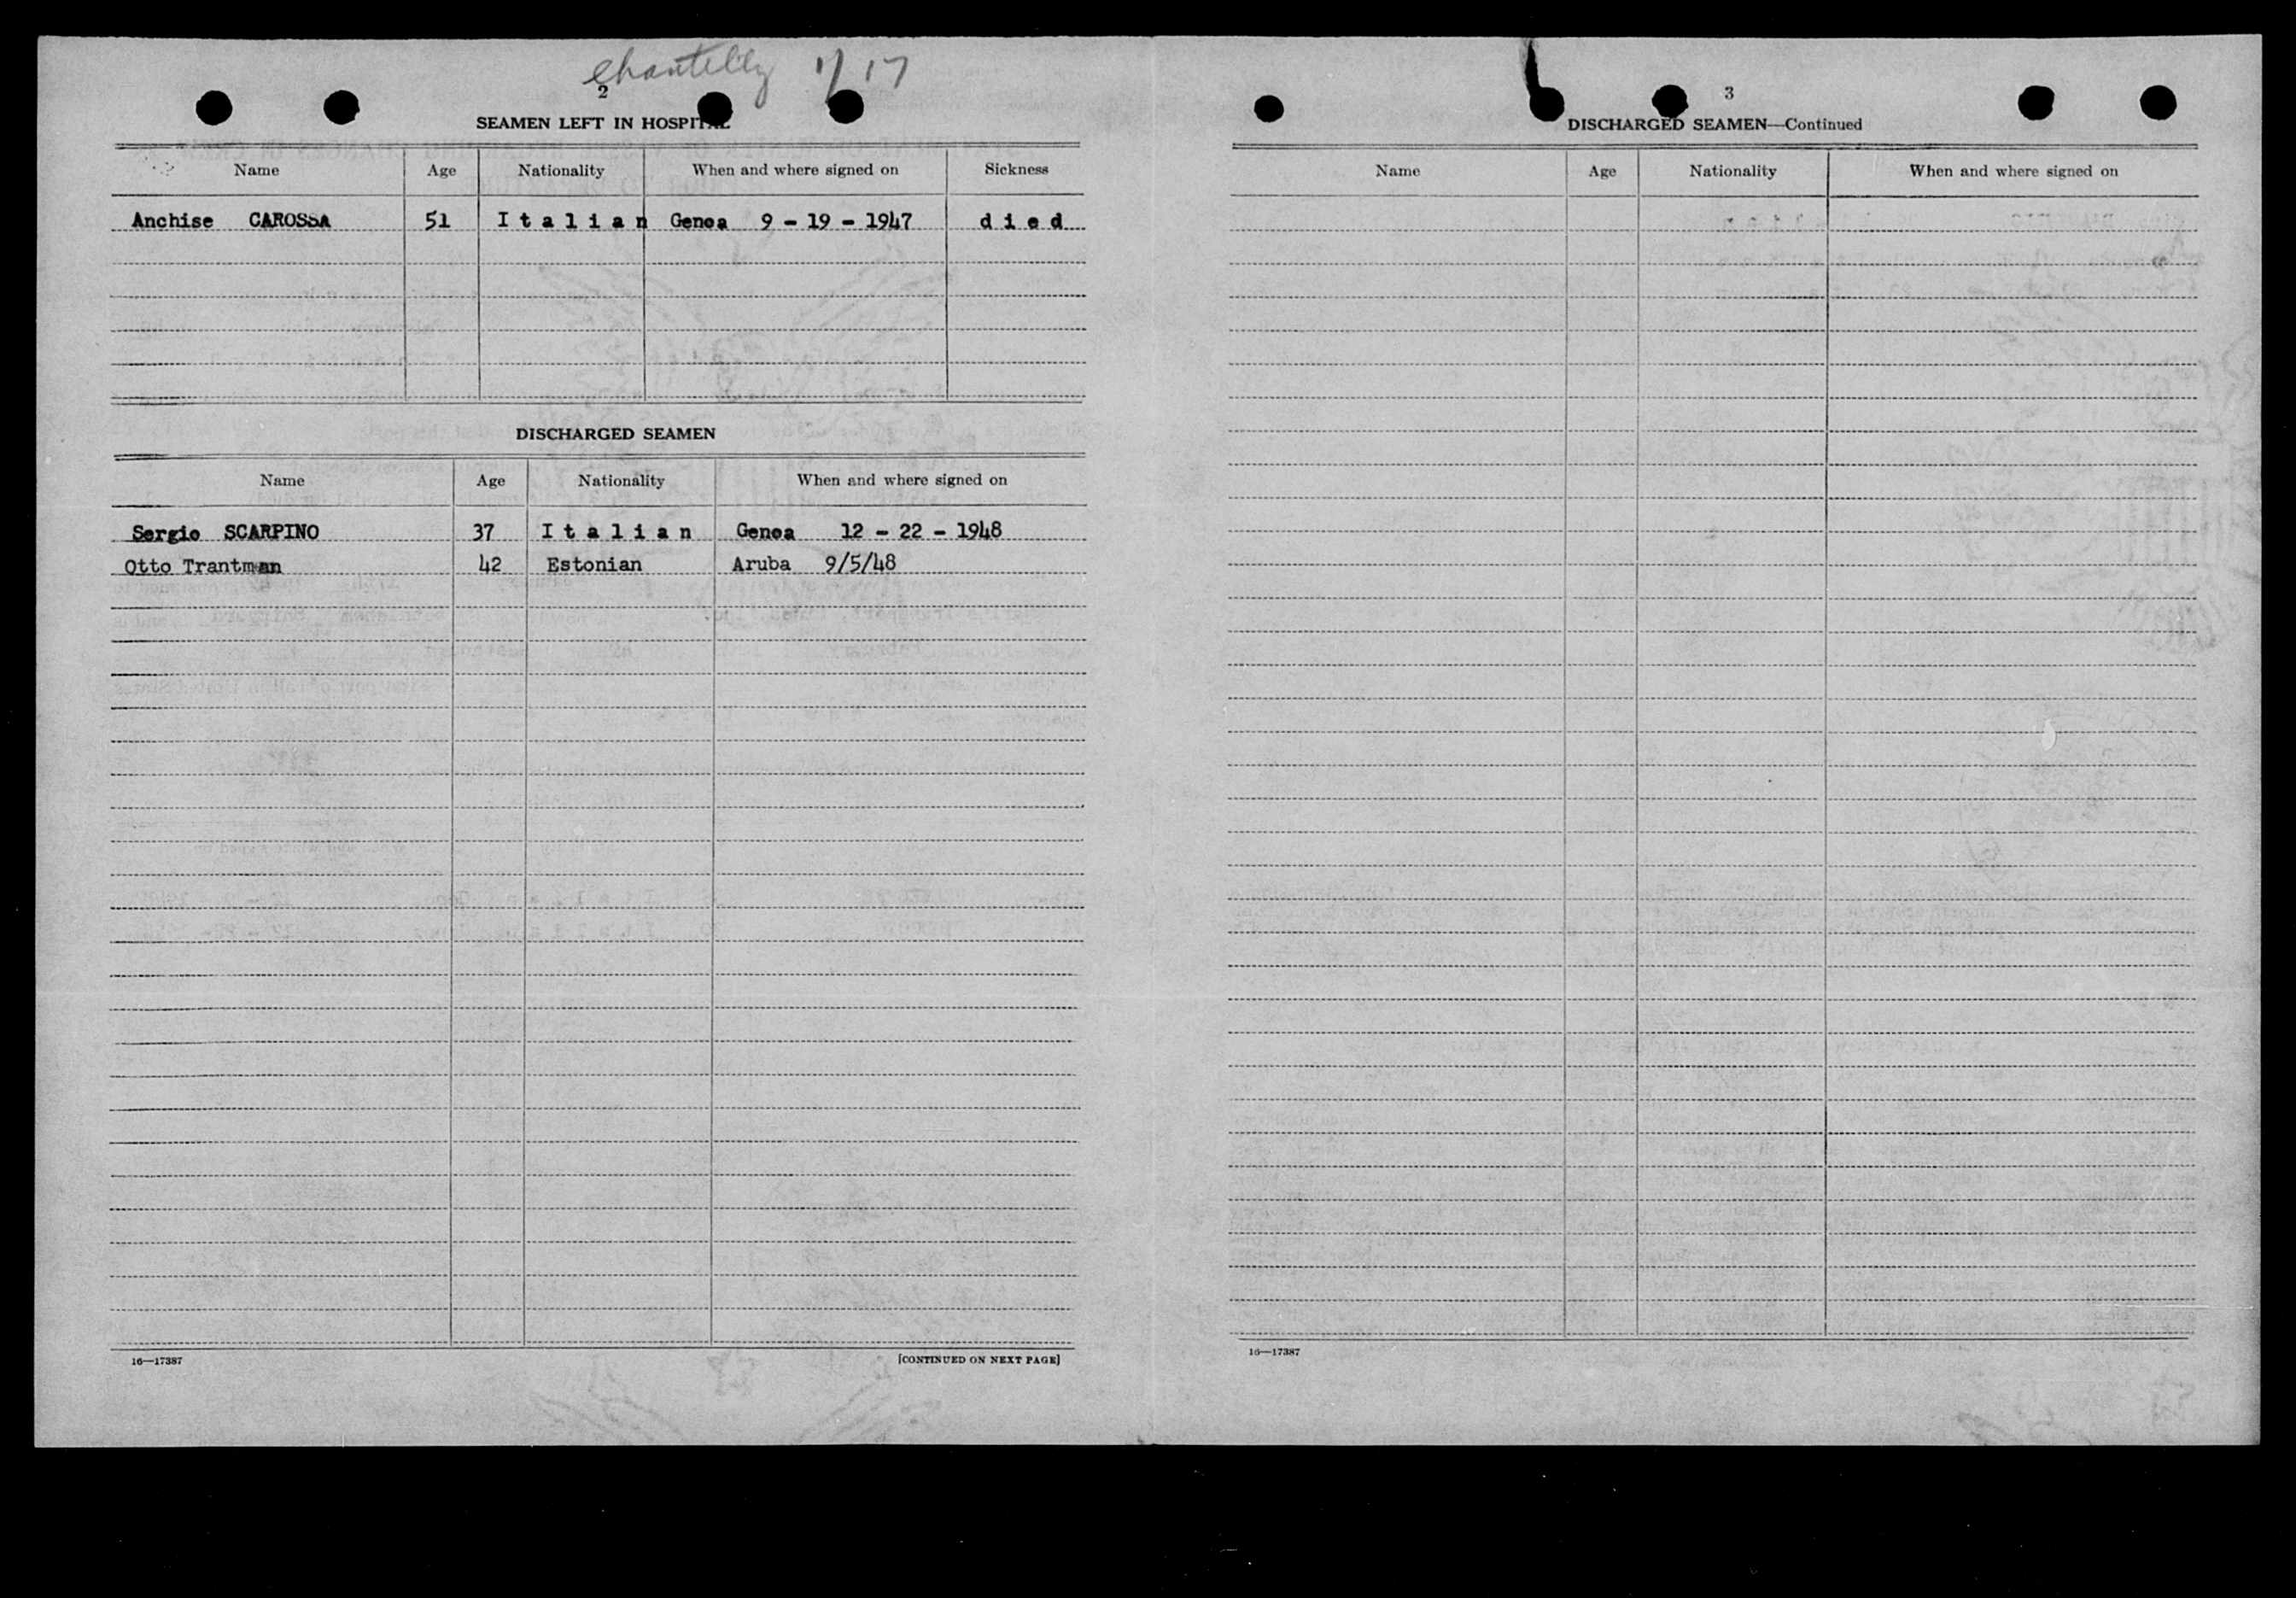 Chantilly 1/17
2
SEAMEN LEFT IN HOSPITAL
Name Age Nationality When and where signed on Sickness
Anchise CAROSSA 51 Italian Genoa 9 - 19 - 1947 died
DISCHARGED SEAMEN
Name Age Nationality When and where signed on
Sergio SCARPINO 37 Italian Genoa 12 - 22 - 1948
Otto Trantman 42 Estonian Aruba 9/5/48
16—17387 [CONTINUED ON NEXT PAGE]
3
DISCHARGED SEAMEN—Continued
Name Age Nationality When and where signed on
16—17387